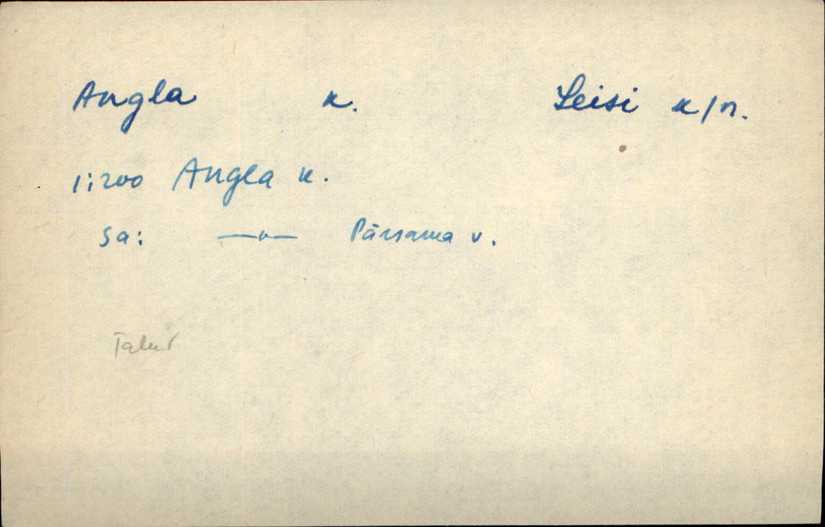 Angla k. Leisi k/n.
1:200 Angla k.
Sa: —"— Pärsama v.